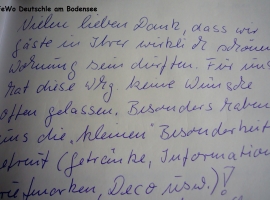 FeWo Deutschle am Bodensee
Vielen lieben Dank, dass wir
Gäste in Ihrer wirklich schönen
Wohnung sein durften. Für uns
hat diese Whg keine Wünsche
offen gelassen. Besonders haben
uns die "kleinen" Besonderheit
efreut (Getränke, Information
riefmarken, Deco usw.)!